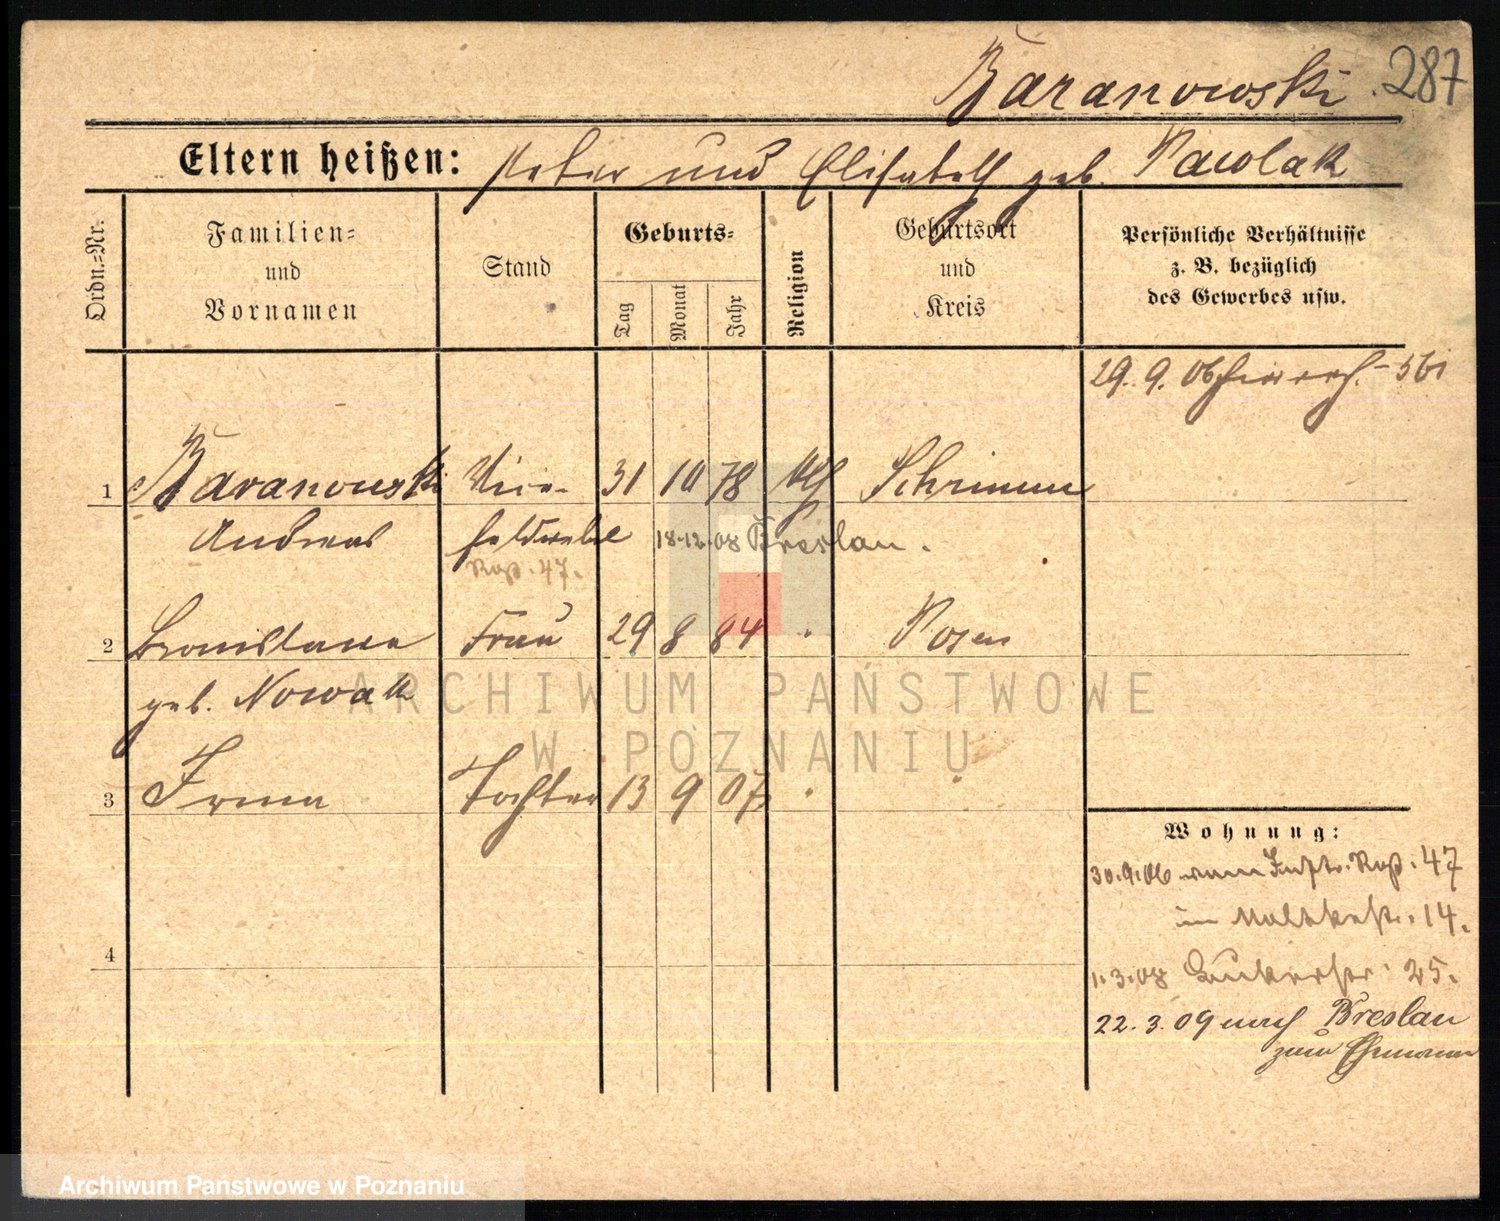 Baranowski. 287
Eltern heißen: Peter und Elisabeth geb. Pawolak
Ordn.=Nr.
Familien=
und
Vornamen
Stand
Geburts=
Tag
Monat
Jahr
Religion
Geburtsort
und
Kreis
Persönliche Verhältnisse
z. B. bezüglich
des Gewerbes usw.
29. 9. 06
1 Baranowski Vice- 31 10 78 Schrimm
Andreas feldwebel 18.12.08 Breslau.
47.
2 Bronislawa Frau 29 8 84 Posen
geb. Nowak
3 Irma Tochter 13 9 07
4
Wohnung:
30.9.06 vom Inftr. Rgt. 47
in Moltkestr. 14.
1.3.08 25.
22. 3. 09 nach Breslau
zum Ehemann
ARCHIWUM PAŃSTWOWE
W POZNANIU
Archiwum Państwowe w Poznaniu